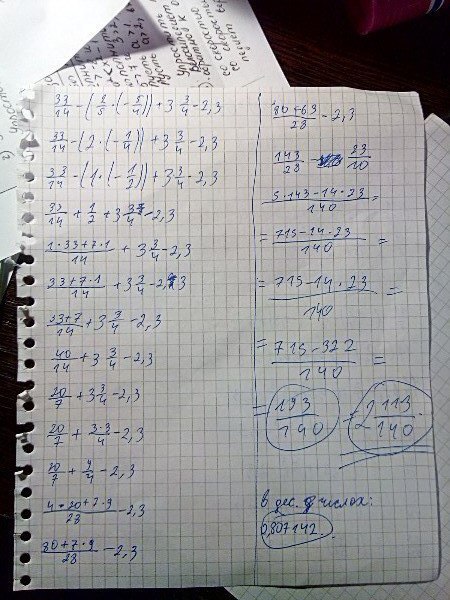 33/14 - (8/5 · (-5/4)) + 3 3/4 - 2,3
33/14 - (2 · (-1/4)) + 3 3/4 - 2,3
33/14 - (1 · (-1/2)) + 3 3/4 - 2,3
33/14 + 1/2 + 3 3/4 - 2,3
1·33+7·1/14 + 3 3/4 - 2,3
33+7·1/14 + 3 3/4 - 2,3
33+7/14 + 3 3/4 - 2,3
40/14 + 3 3/4 - 2,3
20/7 + 3 3/4 - 2,3
20/7 + 3·3/4 - 2,3
20/7 + 9/4 - 2,3
4·20+7·9/28 - 2,3
80+7·9/28 - 2,3
80+63/28 - 2,3
143/28 - 23/10
5·143-14·23/140 =
= 715-14·23/140 =
= 715-14·23/140 =
= 715-322/140 =
= 193/140 = 2 113/140
в дес. числах:
0,807142